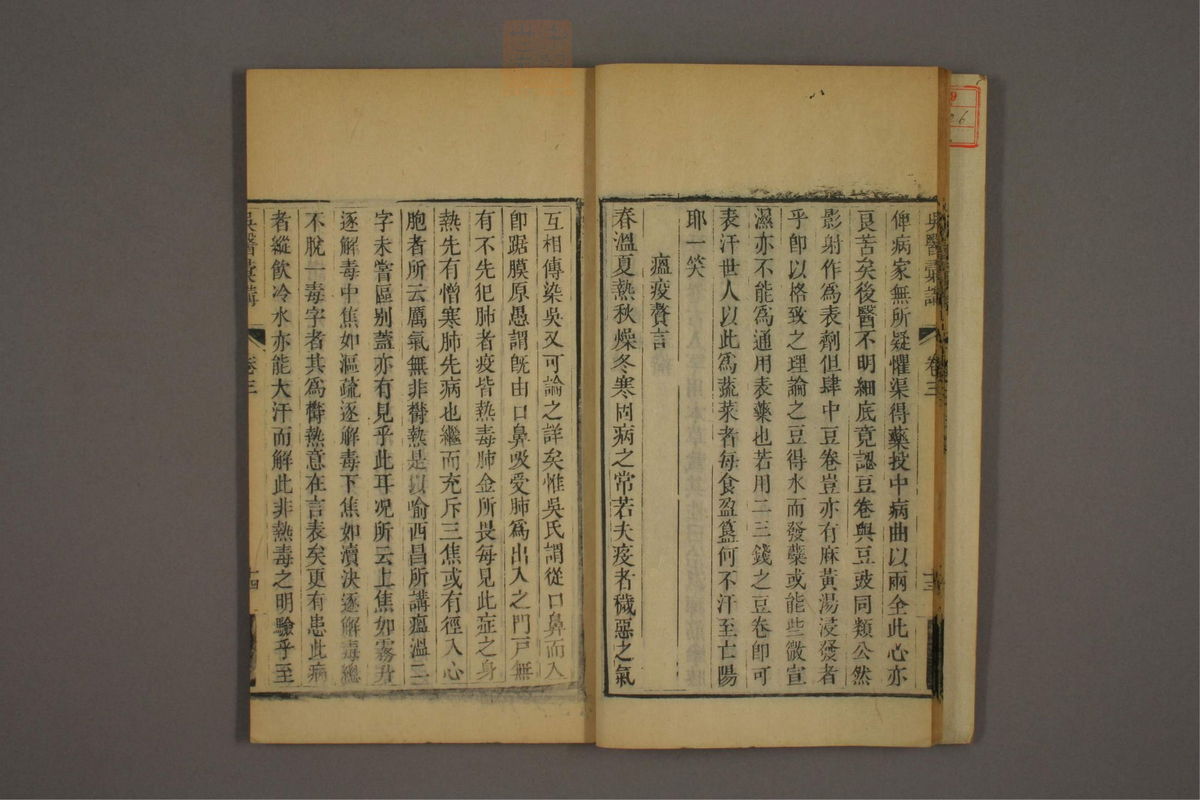 吳醫彙講
卷三
十三
俾病家無所疑懼渠得藥投中病曲以兩全此心亦
良苦矣後醫不明細底竟認豆卷與豆豉同類公然
影射作爲表劑但肆中豆卷豈亦有麻黃湯浸發者
乎卽以格致之理論之豆得水而發蘖或能些微宣
濕亦不能爲通用表藥也若用二三錢之豆卷卽可
表汗世人以此爲蔬菜者每食盈簋何不汗至亡陽
耶一笑
瘟疫贅言
春溫夏熱秋燥冬寒固病之常若夫疫者穢惡之氣
互相傳染吳又可論之詳矣惟吳氏謂從口鼻而入
卽踞膜原愚謂旣由口鼻吸受肺爲出入之門戸無
有不先犯肺者疫皆熱毒肺金所畏每見此症之身
熱先有憎寒肺先病也繼而充斥三焦或有徑入心
胞者所云厲氣無非鬱熱是以喻西昌所講瘟溫二
字未嘗區别蓋亦有見乎此耳况所云上焦如霧升
逐解毒中焦如漚疏逐解毒下焦如瀆決逐解毒總
不脫一毒字者其爲鬱熱意在言表矣更有患此病
者縱飲冷水亦能大汗而解此非熱毒之明驗乎至
吳醫彙講
卷三
十四